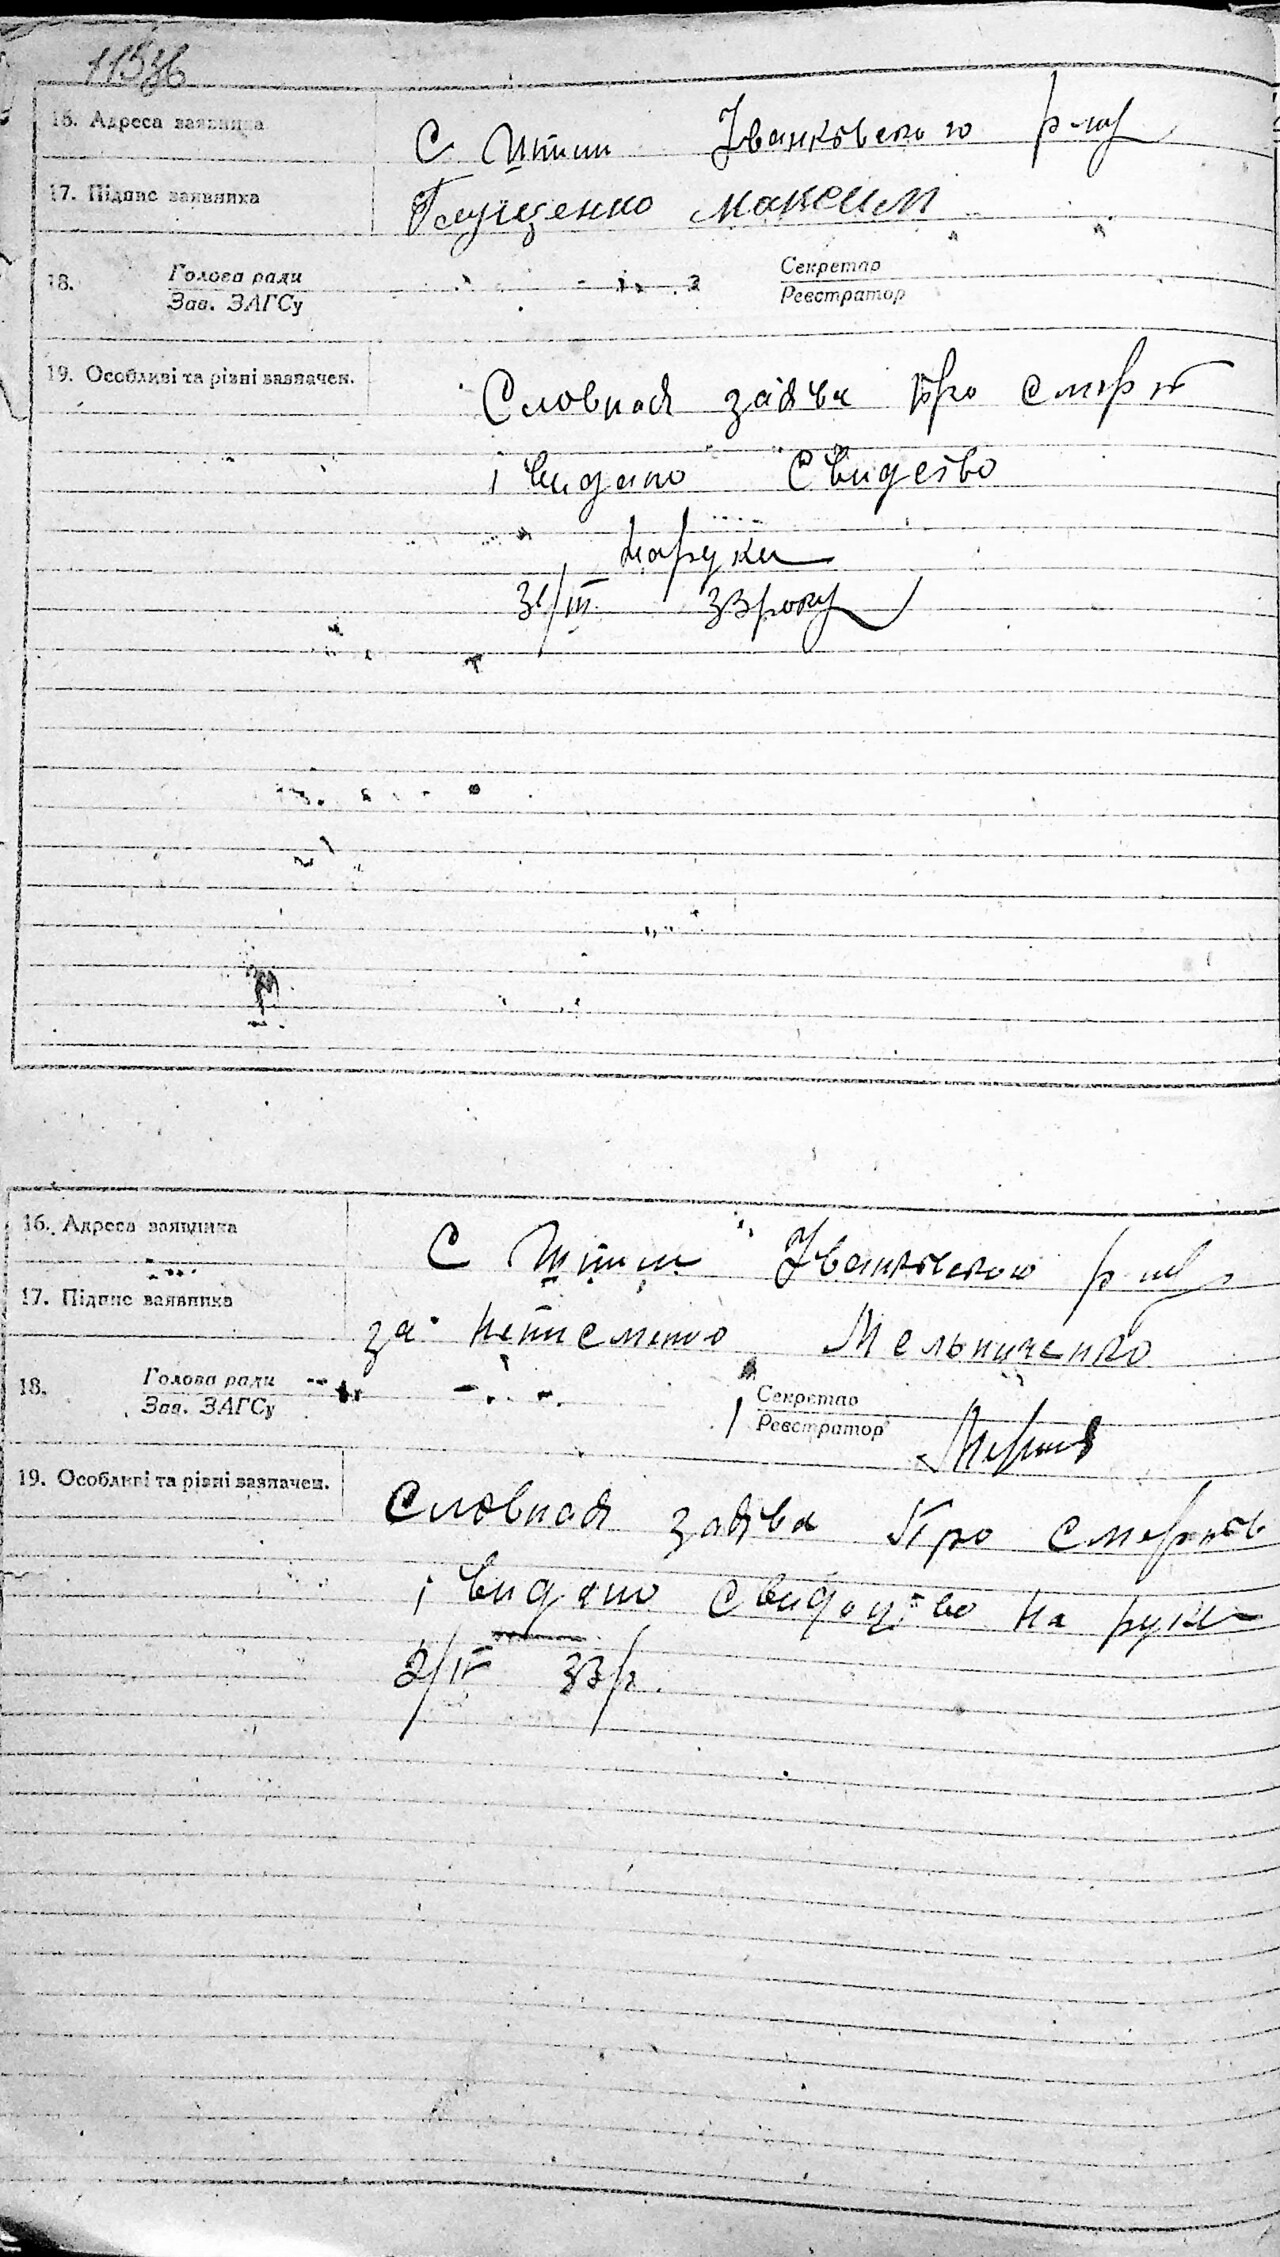 115зв
16. Адреса заявника
С Шпили Іванківського р-ну
17. Підпис заявника
Глущенко Максим
18. Голова ради
Зав. ЗАГСу
Секретар
Реєстратор
19. Особливі та різні зазначен.
Словная заява про смерть
і видано Свидетво
наруки
31/III 33 року
16. Адреса заявника
С Шпили Іванківського р-ну
17. Підпис заявника
за неписьмено Мельниченко
18. Голова ради
Зав. ЗАГСу
Секретар
Реєстратор
19. Особливі та різні зазначен.
Словная заява про смерть
і видано свидоцтво на руки
2/IV 33 р.